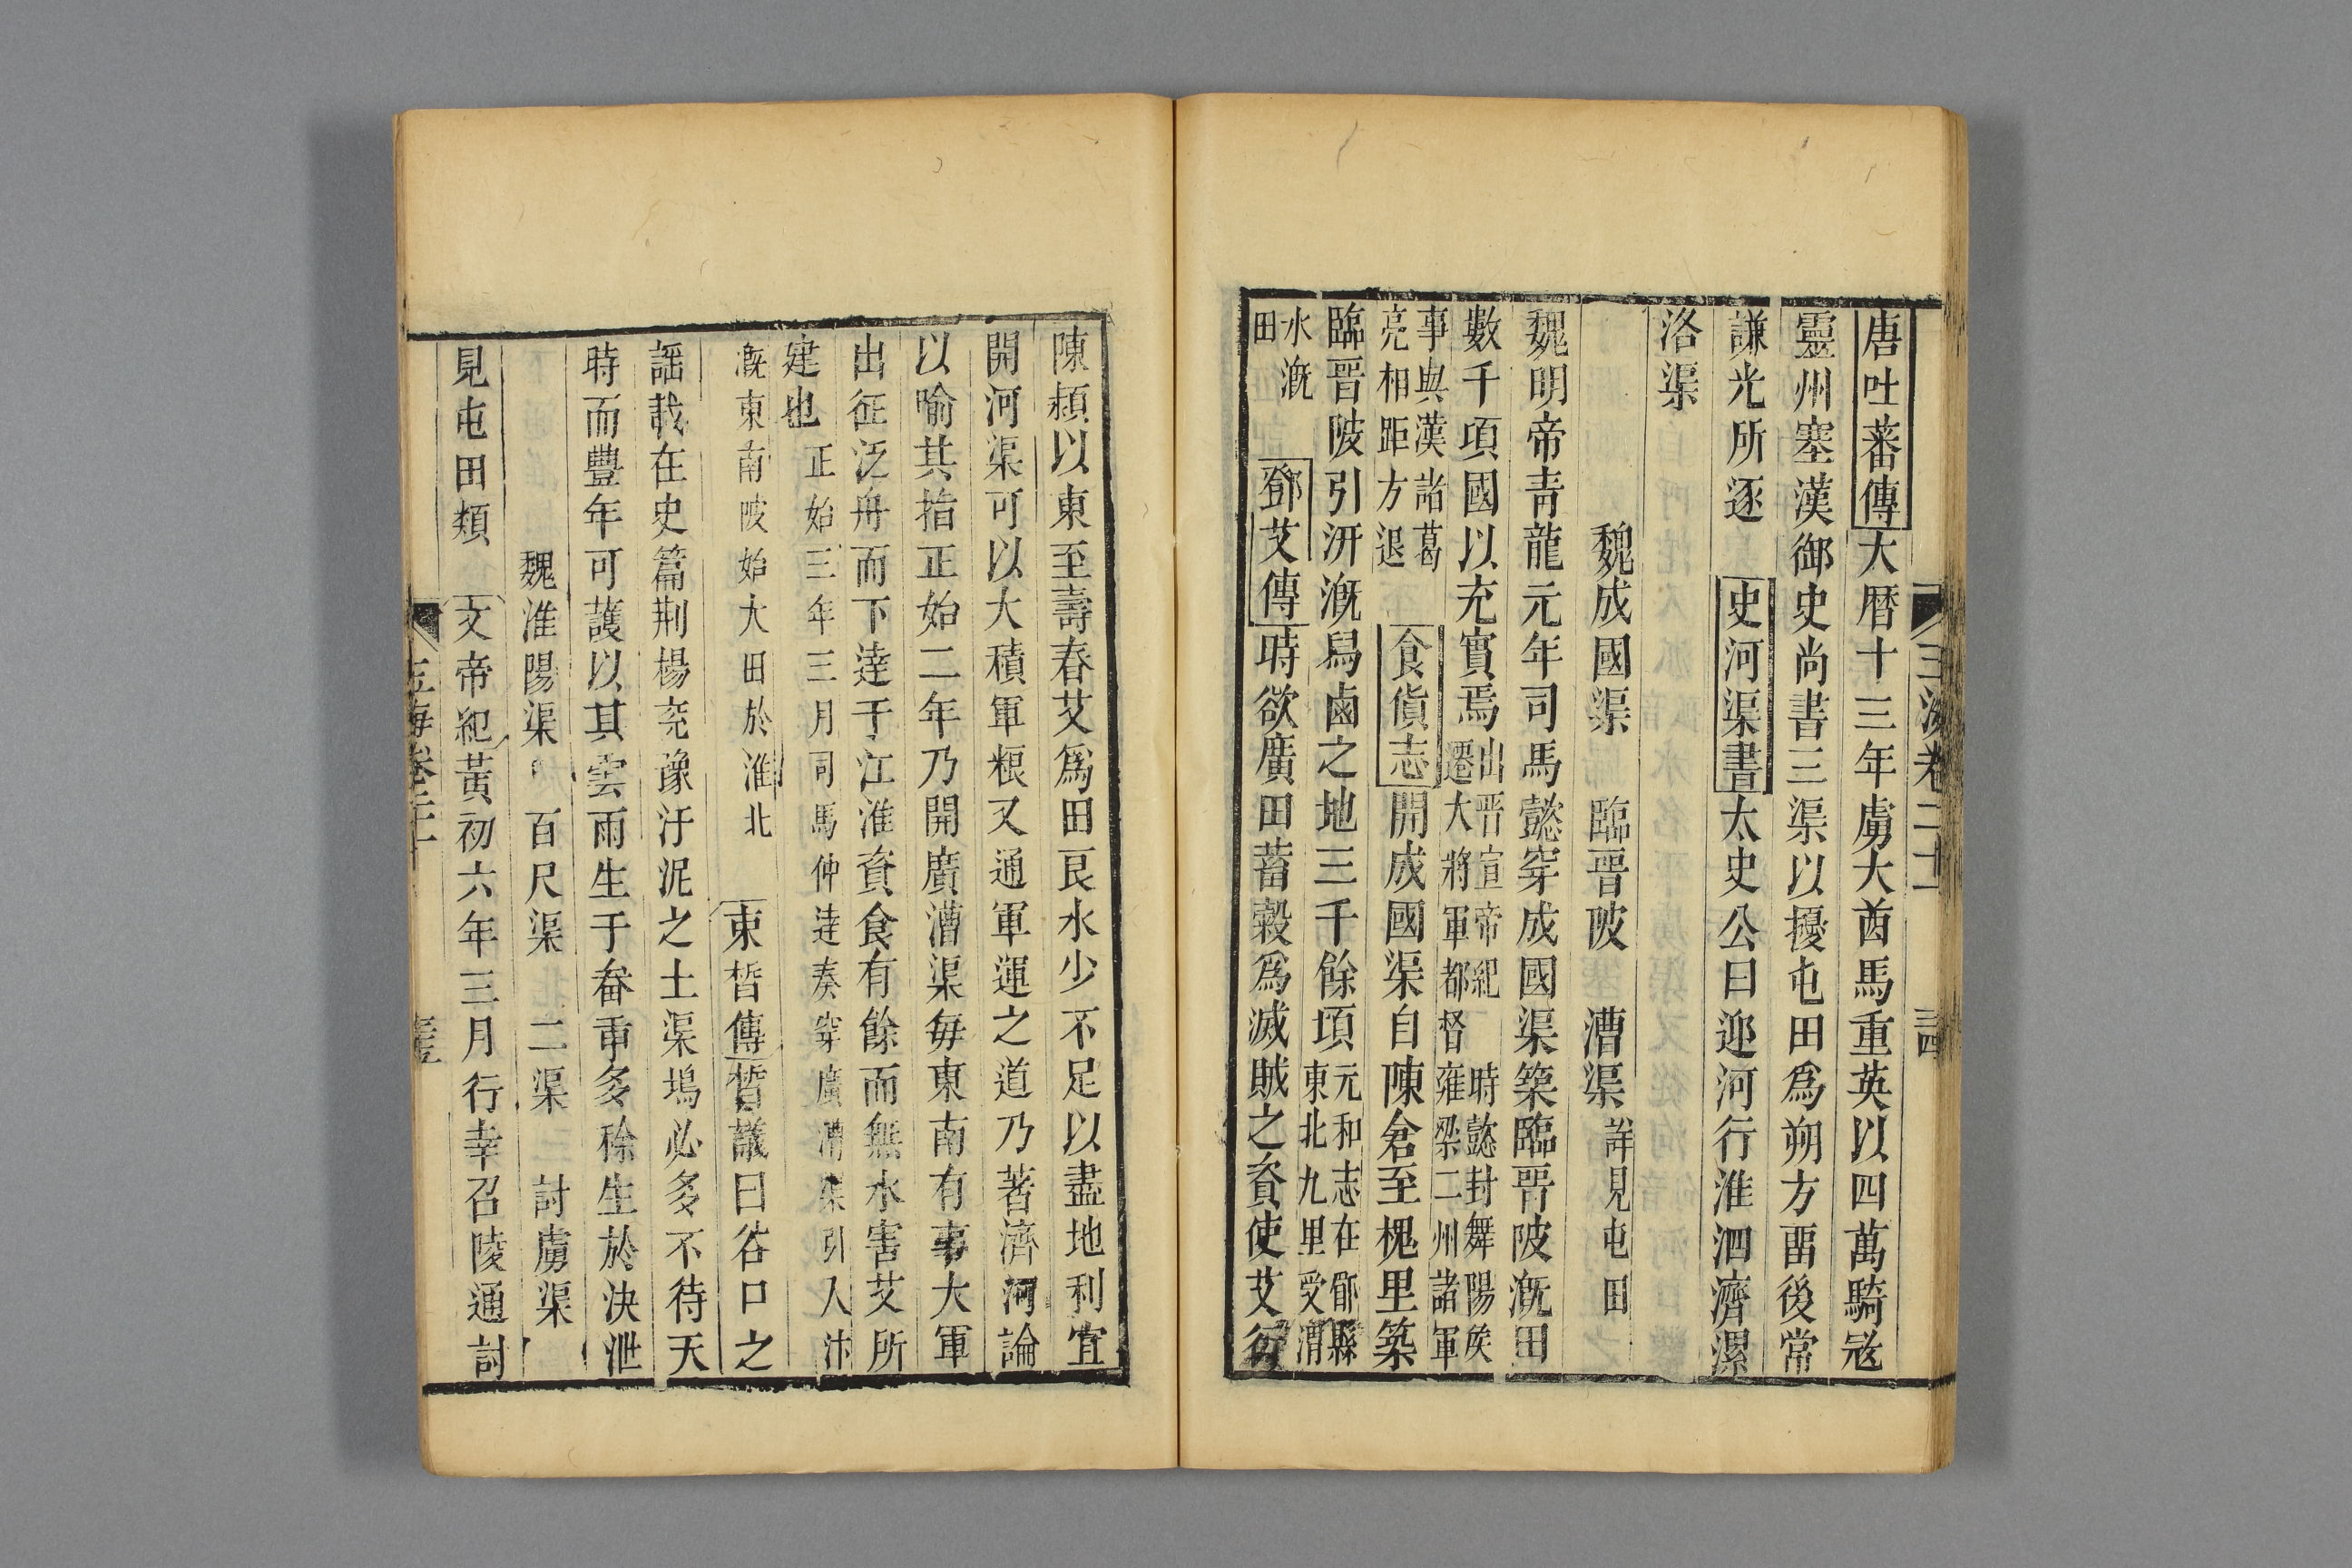 唐吐蕃傳大曆十三年虜大酋馬重英以四萬騎寇
靈州塞漢御史尚書三渠以擾屯田爲朔方畱後常
謙光所逐　史河渠書太史公曰迎河行淮泗濟漯
洛渠
魏成國渠　臨晉陂　漕渠詳見屯田
魏明帝青龍元年司馬懿穿成國渠築臨晉陂溉田
數千項國以充實焉出晉宣帝紀　時懿封舞陽侯
遷大將軍都督雍梁二州諸軍
事與漢諸葛
亮相距方退　食貨志開成國渠自陳倉至槐里築
臨晉陂引汧溉舄鹵之地三千餘項元和志在郿縣
東北九里受渭
水溉
田　鄧艾傳時欲廣田蓄穀爲滅賊之資使艾行
陳項以東至壽春艾爲田良水少不足以盡地利宜
開河渠可以大積軍粮又通軍運之道乃著濟河論
以喻其指正始二年乃開廣漕渠每東南有事大軍
出征泛舟而下達于江淮資食有餘而無水害艾所
建也正始三年三月司馬仲達奏穿廣漕渠引人汴
溉東南陂始大田於淮北　東晳傳晳議曰谷口之
謡載在史篇荆楊兖豫汙泥之土渠塢必多不待天
時而豐年可護以其雲雨生于畚臿多稌生於決泄
魏淮陽渠　百尺渠　二渠　討虜渠
見屯田類　文帝紀黃初六年三月行幸召陵通討
玉海卷二十